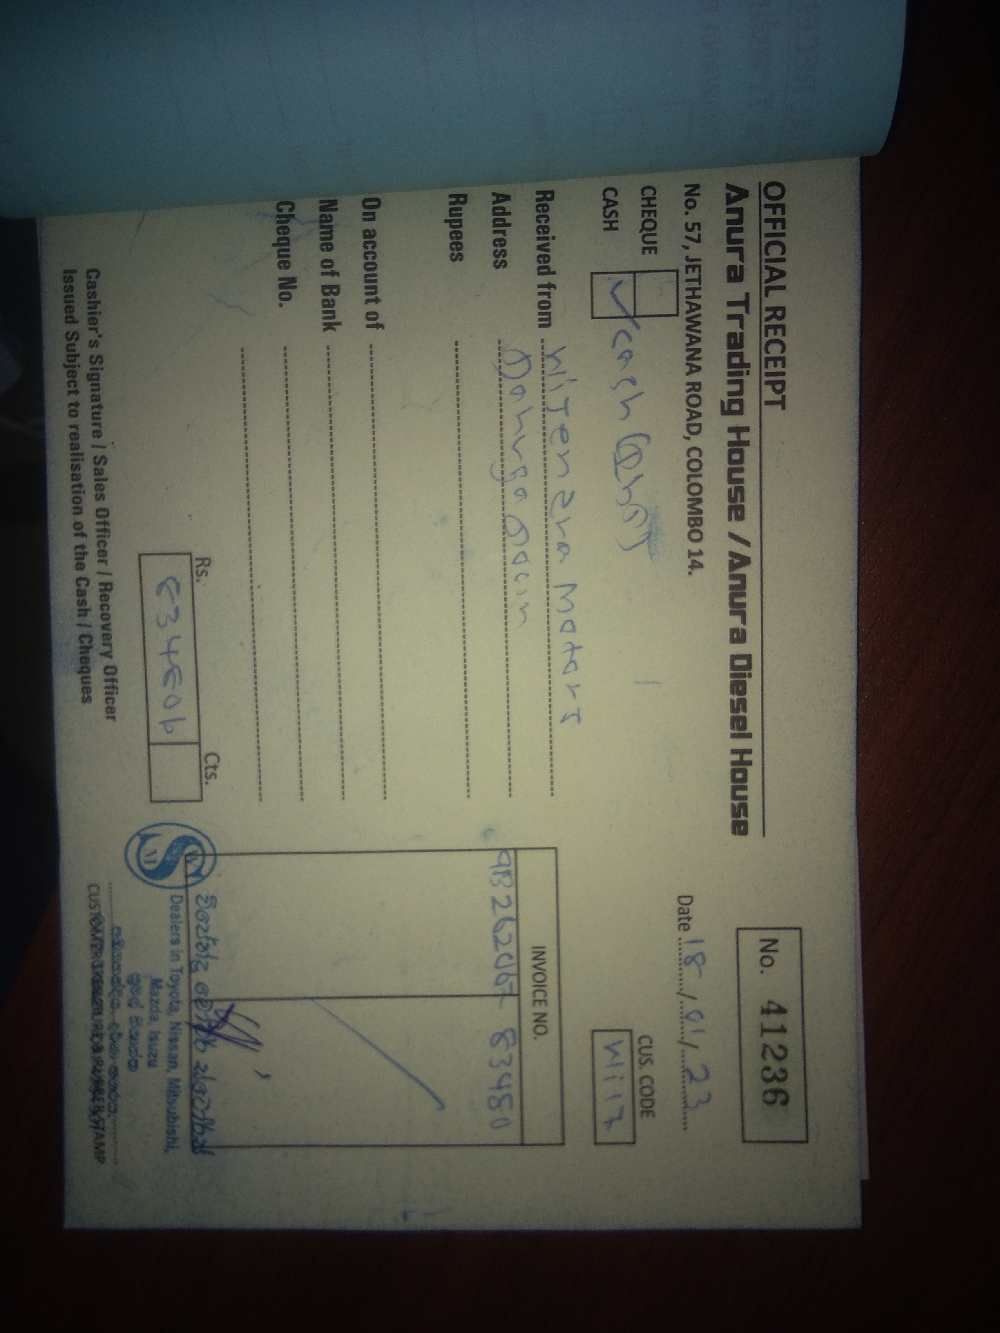 OFFICIAL RECEIPT
Anura Trading House / Anura Diesel House
No. 57, JETHAWANA ROAD, COLOMBO 14.
No. 41236
Date 18/01/23
CHEQUE
CASH ✓ cash
CUS. CODE
Wi17
Received from Wijenara Motors
Address
Rupees
On account of
Name of Bank
Cheque No.
INVOICE NO.
83480
Rs. Cts.
Cashier's Signature / Sales Officer / Recovery Officer
Issued Subject to realisation of the Cash / Cheques
Dealers in Toyota, Nissan, Mitsubishi,
Mazda, Isuzu